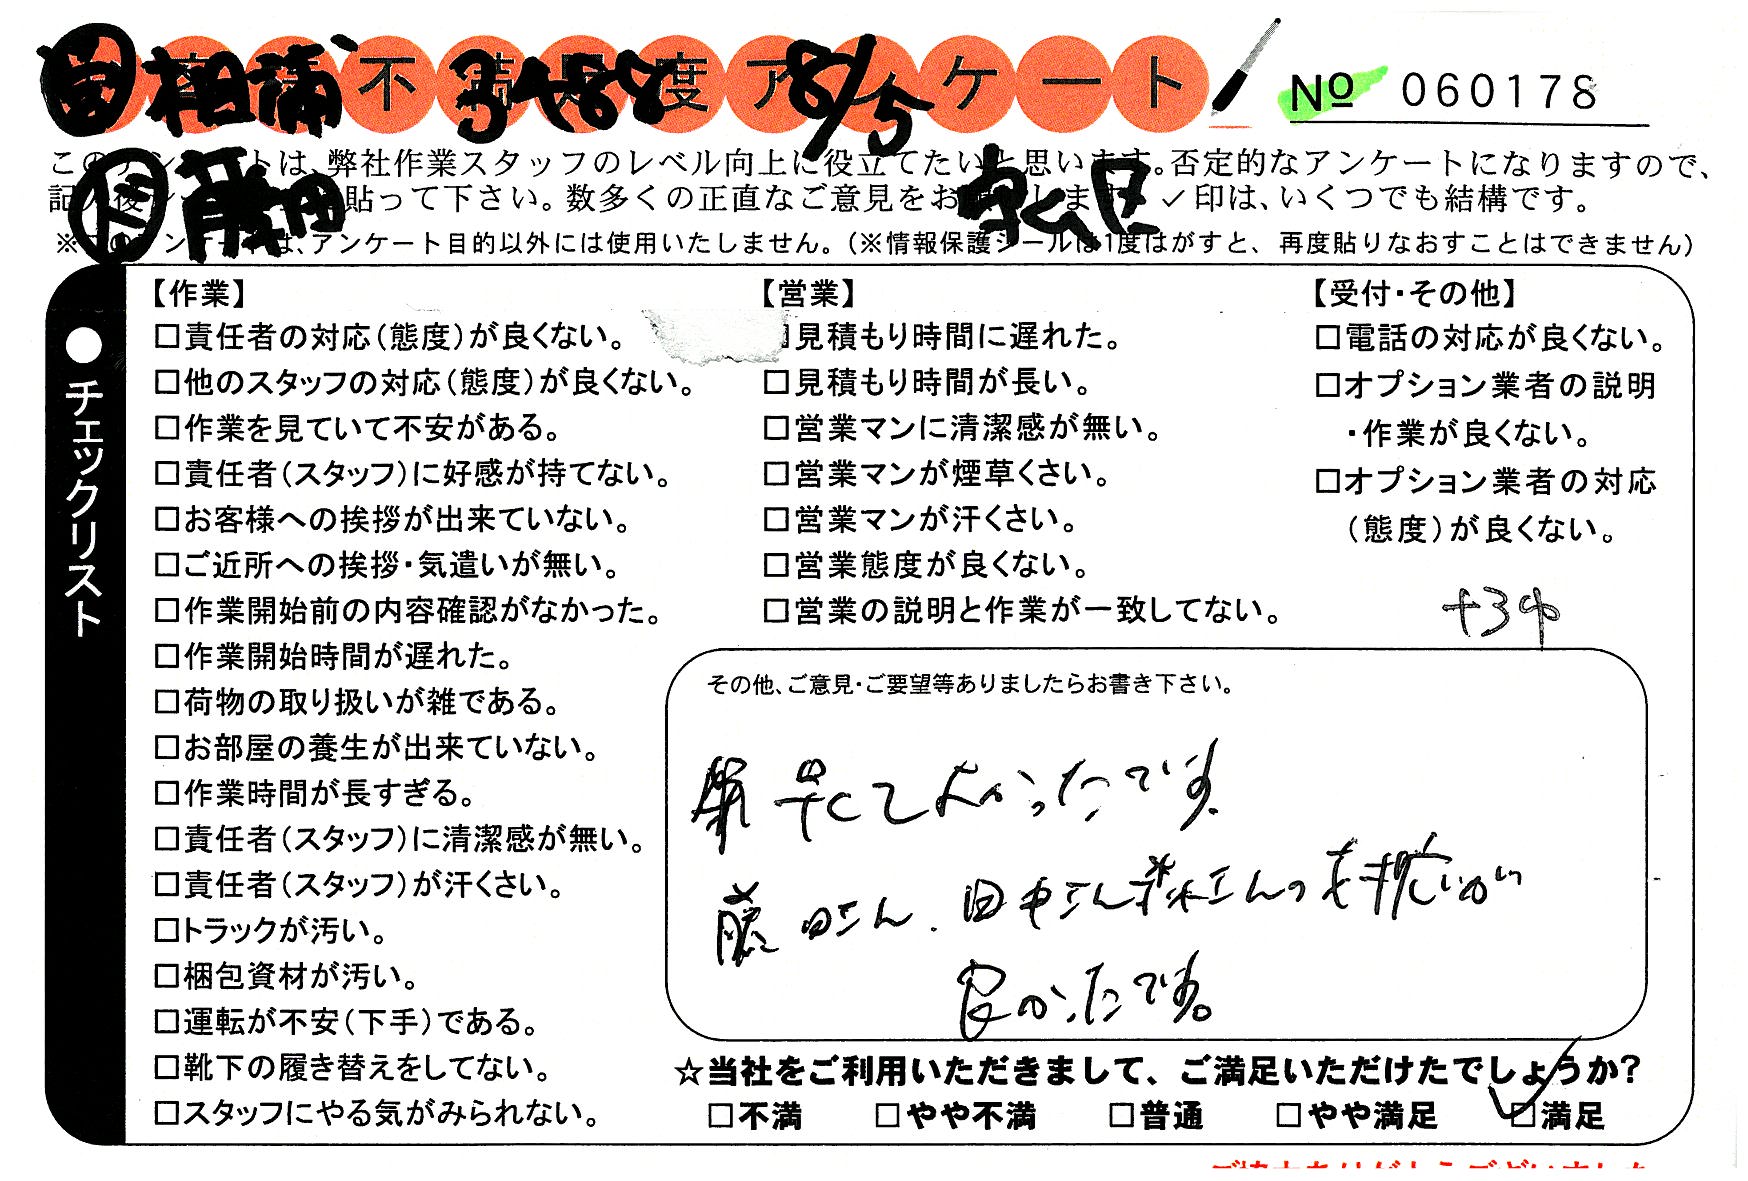 営 相浦 不満足度アンケート 3488 8/5 № 060178
このアンケートは、弊社作業スタッフのレベル向上に役立てたいと思います。否定的なアンケートになりますので、
ド 藤田 貼って下さい。数多くの正直なご意見をお します ✓印は、いくつでも結構です。
※このアンケートは、アンケート目的以外には使用いたしません。(※情報保護シールは1度はがすと、再度貼りなおすことはできません)
●チェックリスト
【作業】
□責任者の対応(態度)が良くない。
□他のスタッフの対応(態度)が良くない。
□作業を見ていて不安がある。
□責任者(スタッフ)に好感が持てない。
□お客様への挨拶が出来ていない。
□ご近所への挨拶・気遣いが無い。
□作業開始前の内容確認がなかった。
□作業開始時間が遅れた。
□荷物の取り扱いが雑である。
□お部屋の養生が出来ていない。
□作業時間が長すぎる。
□責任者(スタッフ)に清潔感が無い。
□責任者(スタッフ)が汗くさい。
□トラックが汚い。
□梱包資材が汚い。
□運転が不安(下手)である。
□靴下の履き替えをしてない。
□スタッフにやる気がみられない。
【営業】
□見積もり時間に遅れた。
□見積もり時間が長い。
□営業マンに清潔感が無い。
□営業マンが煙草くさい。
□営業マンが汗くさい。
□営業態度が良くない。
□営業の説明と作業が一致してない。
【受付・その他】
□電話の対応が良くない。
□オプション業者の説明
・作業が良くない。
□オプション業者の対応
(態度)が良くない。
その他、ご意見・ご要望等ありましたらお書き下さい。
早くてよかったです。
藤田さん、田中さん
良かったです。
☆当社をご利用いただきまして、ご満足いただけたでしょうか?
□不満 □やや不満 □普通 □やや満足 □満足
ご協力ありがとうございました